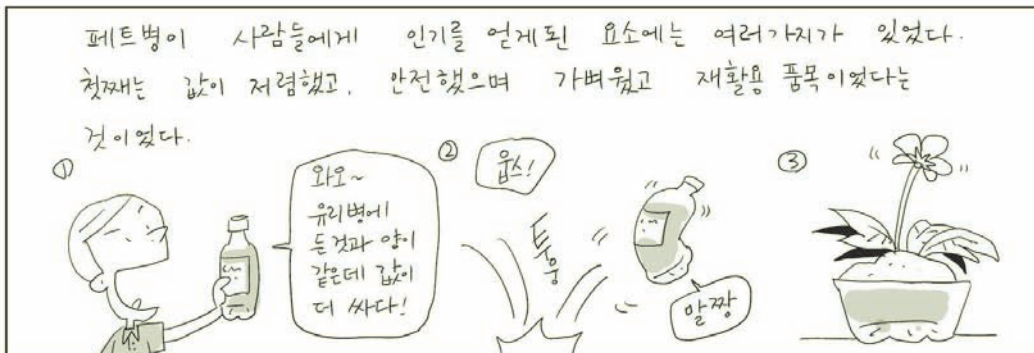 페트병이 사람들에게 인기를 얻게된 요소에는 여러가지가 있었다.
첫째는 값이 저렴했고, 안전했으며 가벼웠고 재활용 품목이었다는
것이었다.
①
와오~
유리병에
든것과 양이
같은데 값이
더 싸다!
②
웁스!
투웅
말짱
③